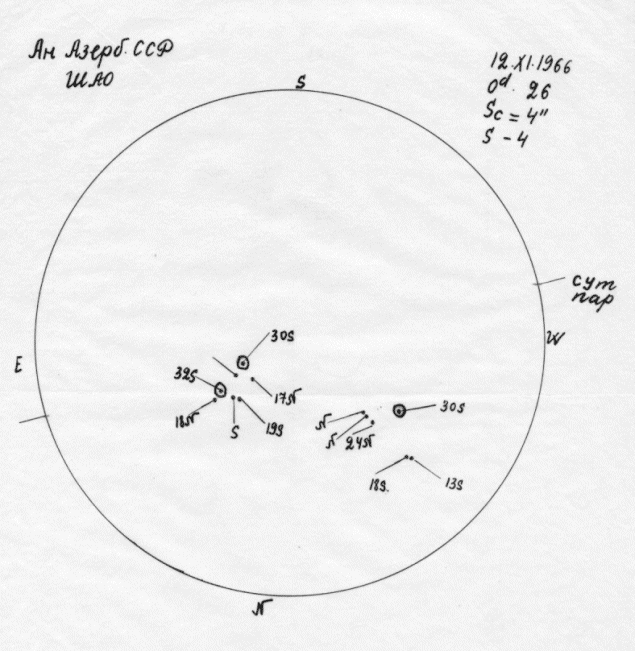 Ан Азерб. ССР
ШАО
12.XI.1966
0d. 26
Sc = 4"
S - 4
S
сут
пар
W
E
30S
32S
17N
18N
S
19S
30S
N
N
24N
18S.
13S
N